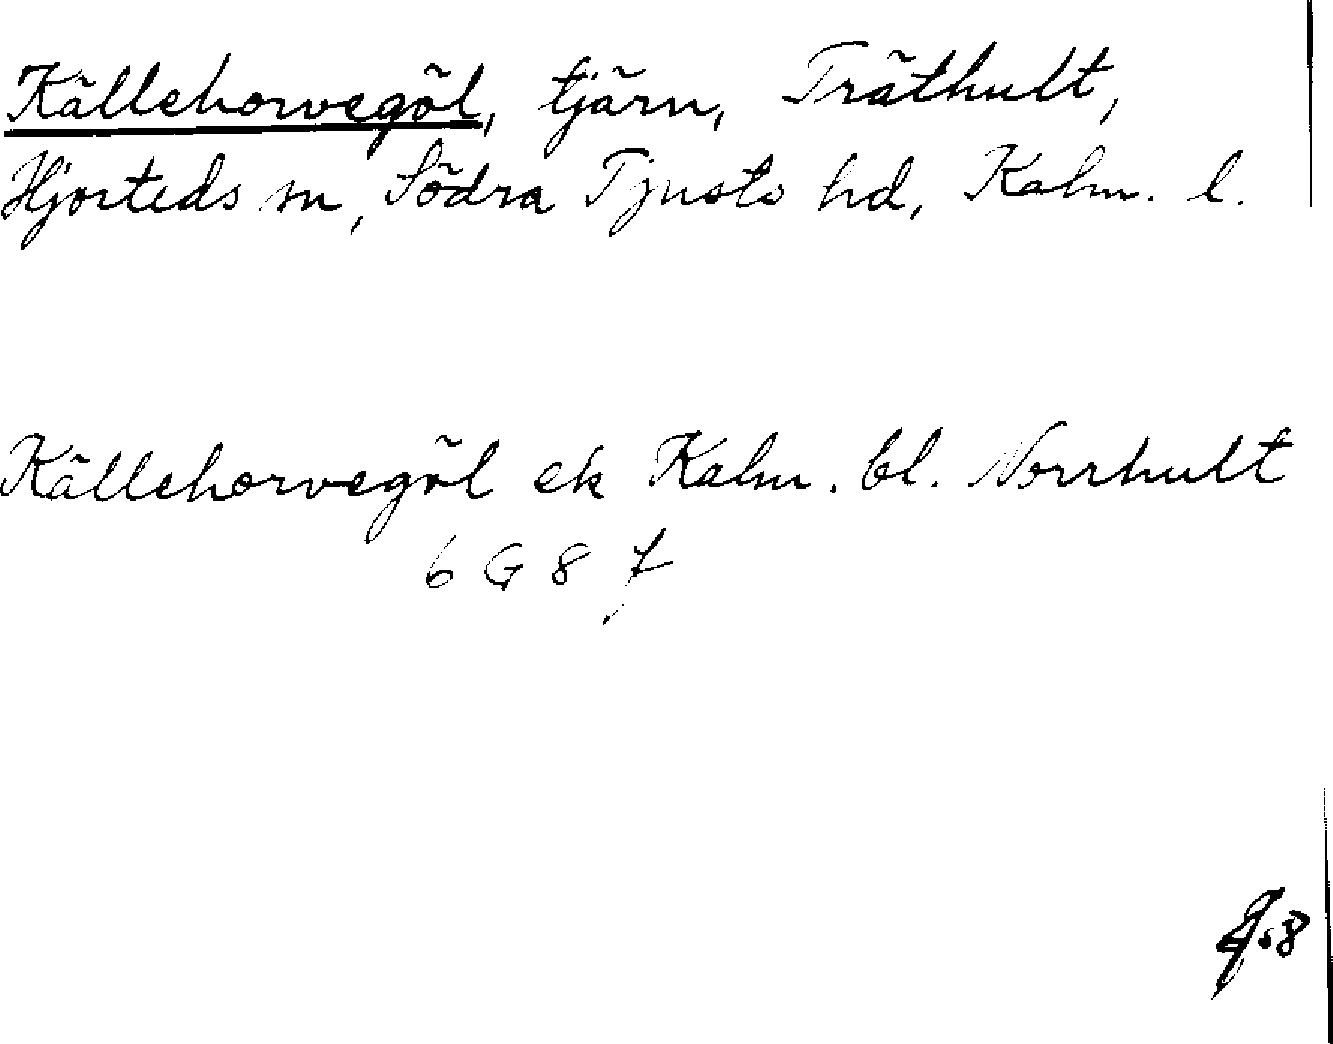 Källehorvegöl, tjärn, Träthult,
Hjorteds sn, Södra Tjusts hd, Kalm. l.
Källehorvegöl ek Kalm. bl. Norrhult
6 G 8 f